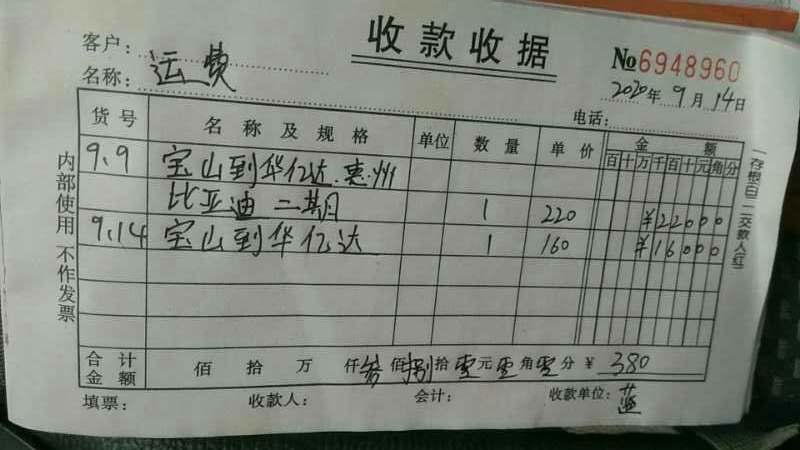 收款收据
客户:
№6948960
名称: 运费
2020年9月14日
电话:
货号 名称及规格 单位 数量 单价 金额
百十万千百十元角分
9.9 宝山到华亿达.惠州
比亚迪二期 1 220 ¥22000
9.14 宝山到华亿达 1 160 ¥16000
合计金额 佰 拾 万 仟叁佰捌拾零元零角零分 ¥ 380
填票: 收款人: 会计: 收款单位: 蓝
内部使用 不作发票
一存根(白) 二交款人(红)